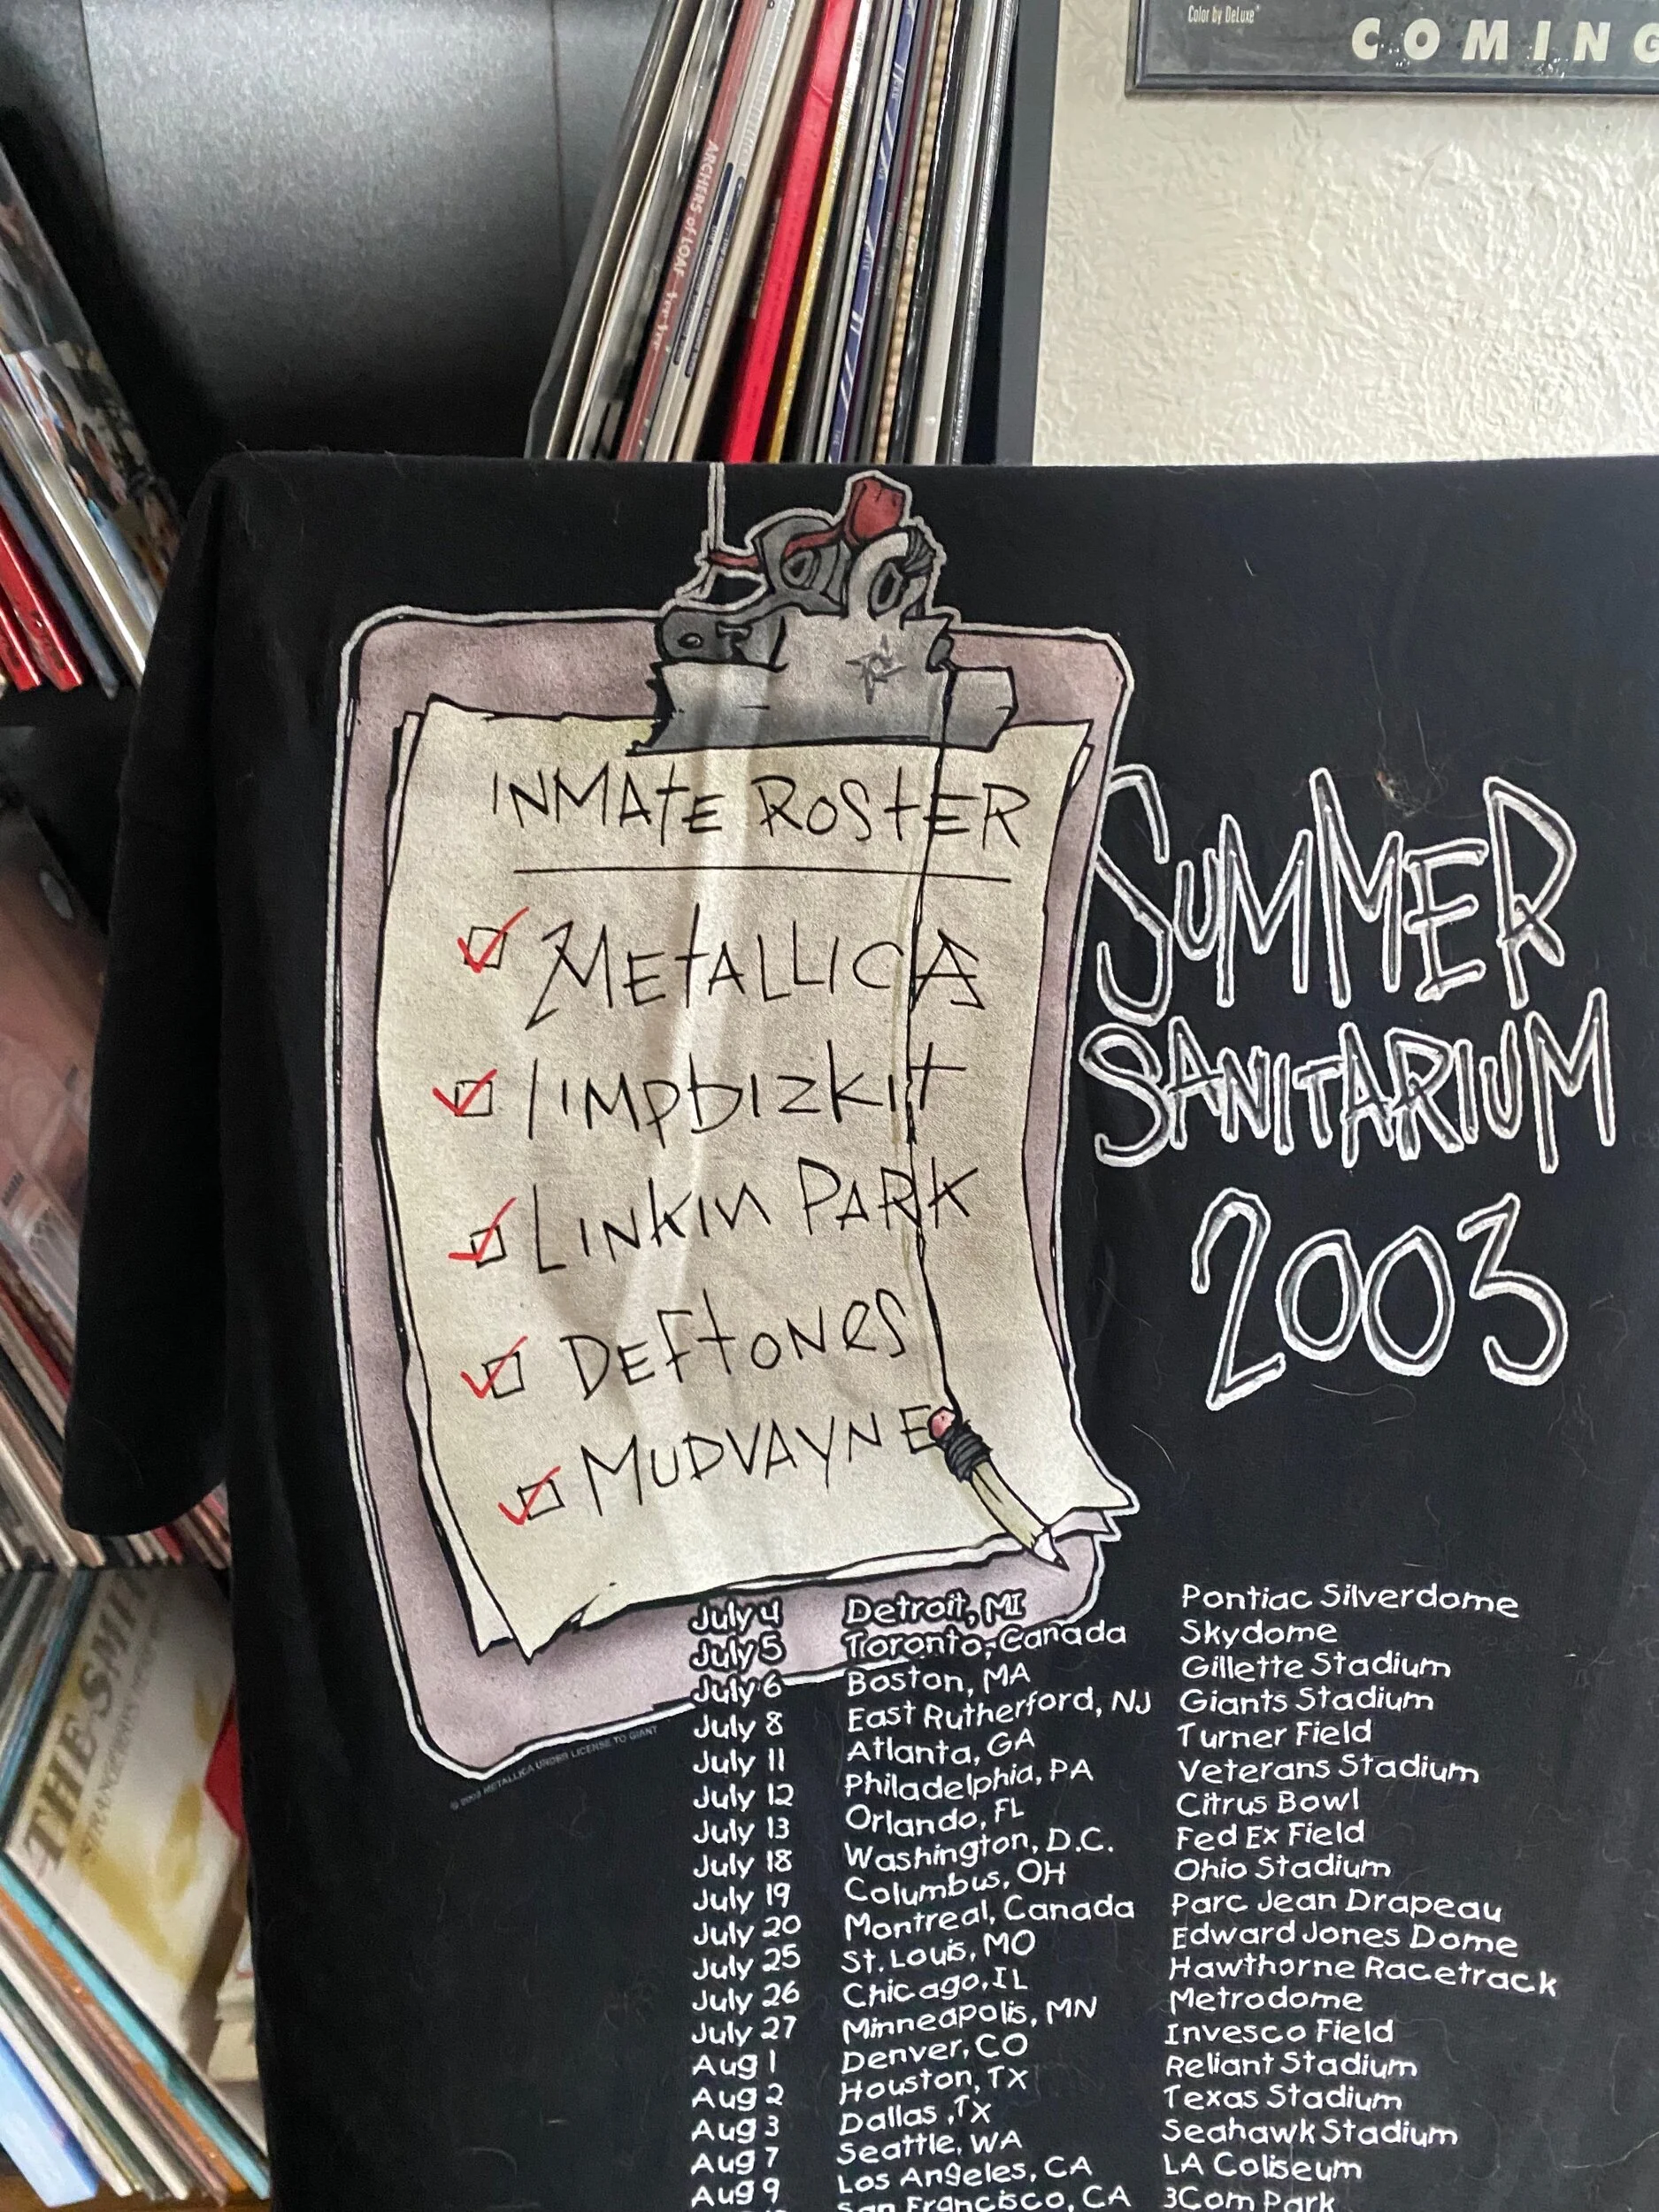 Color by DeLuxe
COMING
ARCHERS of LOAF
INMATE ROSTER
METALLICA
limpbizkit
LINKIN PARK
DEFTONES
MUDVAYNE
SUMMER
SANITARIUM
2003
July 4 Detroit, MI Pontiac Silverdome
July 5 Toronto, Canada Skydome
July 6 Boston, MA Gillette Stadium
July 8 East Rutherford, NJ Giants Stadium
July 11 Atlanta, GA Turner Field
July 12 Philadelphia, PA Veterans Stadium
July 13 Orlando, FL Citrus Bowl
July 18 Washington, D.C. Fed Ex Field
July 19 Columbus, OH Ohio Stadium
July 20 Montreal, Canada Parc Jean Drapeau
July 25 St. Louis, MO Edward Jones Dome
July 26 Chicago, IL Hawthorne Racetrack
July 27 Minneapolis, MN Metrodome
Aug 1 Denver, CO Invesco Field
Aug 2 Houston, TX Reliant Stadium
Aug 3 Dallas, TX Texas Stadium
Aug 7 Seattle, WA Seahawk Stadium
Aug 9 Los Angeles, CA LA Coliseum
San Francisco, CA 3Com Park
© 2003 METALLICA UNDER LICENSE TO GIANT
THE SMIT
STRANGEWAYS, HERE